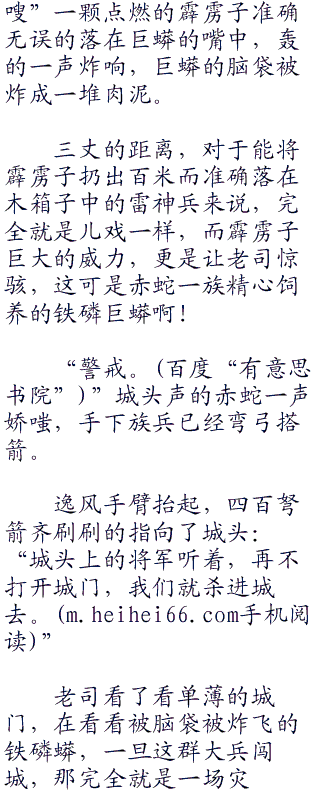 嗖”一颗点燃的霹雳子准确
无误的落在巨蟒的嘴中，轰
的一声炸响，巨蟒的脑袋被
炸成一堆肉泥。
三丈的距离，对于能将
霹雳子扔出百米而准确落在
木箱子中的雷神兵来说，完
全就是儿戏一样，而霹雳子
巨大的威力，更是让老司惊
骇，这可是赤蛇一族精心饲
养的铁磷巨蟒啊！
“警戒。(百度“有意思
书院”)”城头声的赤蛇一声
娇嗤，手下族兵已经弯弓搭
箭。
逸风手臂抬起，四百弩
箭齐刷刷的指向了城头：
“城头上的将军听着，再不
打开城门，我们就杀进城
去。(m.heihei66.com手机阅
读)”
老司看了看单薄的城
门，在看看被脑袋被炸飞的
铁磷蟒，一旦这群大兵闯
城，那完全就是一场灾